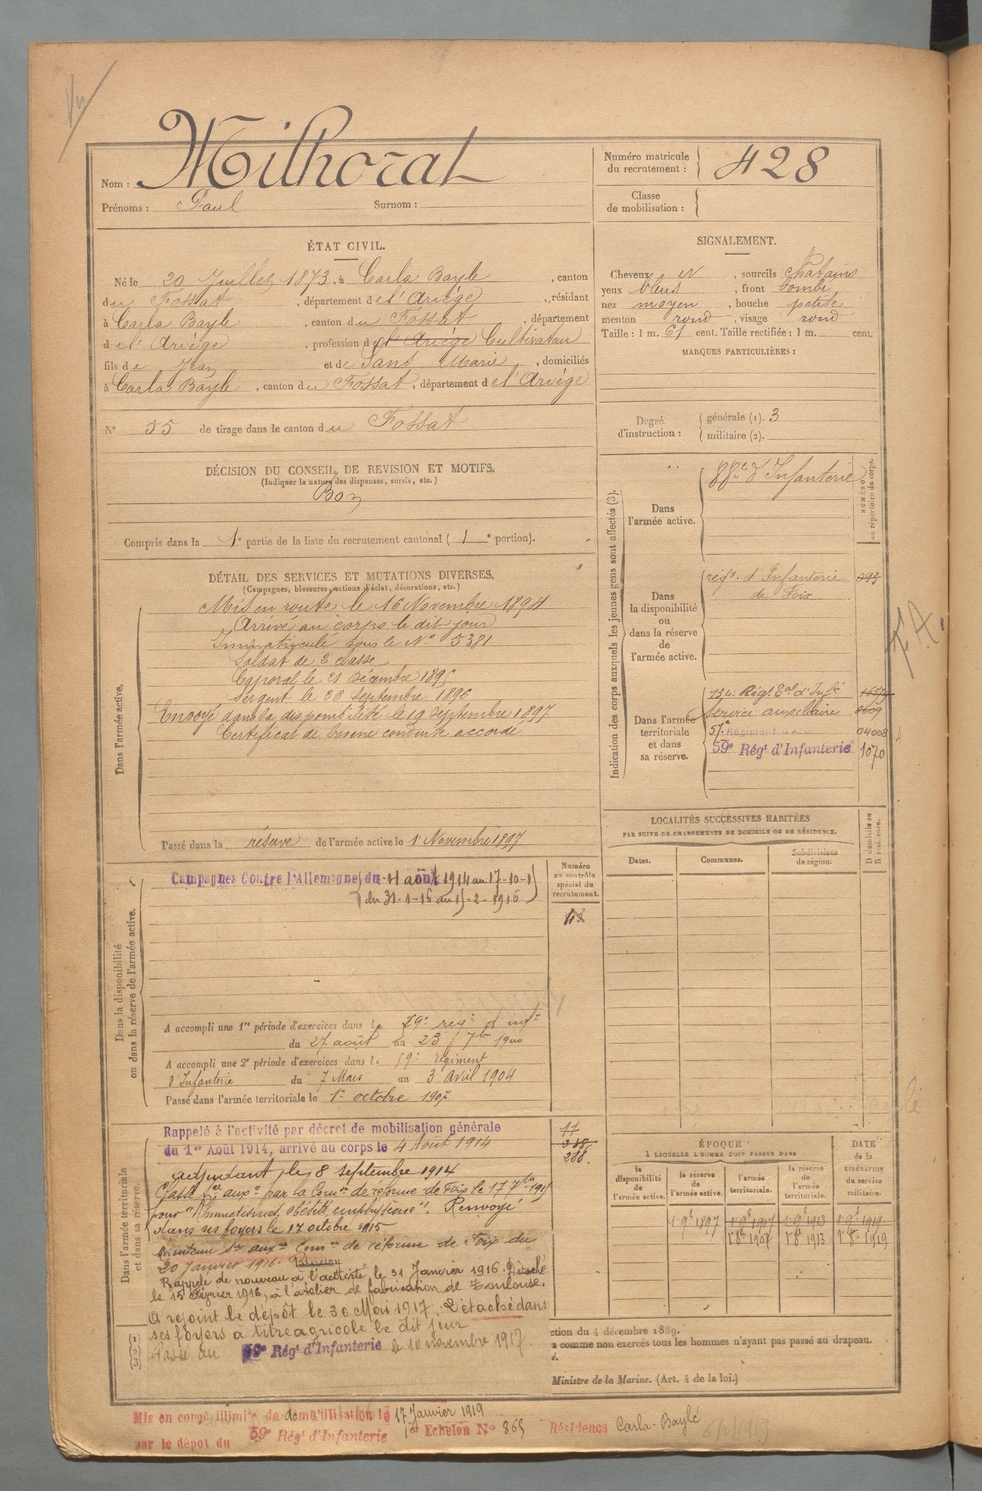 Vu
Nom : Milhorat
Prénoms : Paul Surnom :
Numéro matricule
du recrutement : 428
Classe
de mobilisation :
ÉTAT CIVIL.
Né le 20 Juillet 1873, à Carla Bayle, canton
du Fossat, département de l'Ariège, résidant
à Carla Bayle, canton du Fossat, département
de l'Ariège, profession d de l'Ariège Cultivateur
fils de Jean et de Sans Marie, domiciliés
à Carla Bayle, canton du Fossat, département de l'Ariège
N° 55 de tirage dans le canton du Fossat
SIGNALEMENT.
Cheveux et, sourcils châtains
yeux bleus, front bombé
nez moyen, bouche petite
menton rond, visage rond
Taille : 1 m. 61 cent. Taille rectifiée : 1 m. cent.
MARQUES PARTICULIÈRES :
Degré
d'instruction :
générale (1). 3
militaire (2).
DÉCISION DU CONSEIL DE REVISION ET MOTIFS.
(Indiquer la nature des dispenses, sursis, etc.)
Bon
Compris dans la 1e partie de la liste du recrutement cantonal ( 1 e portion).
DÉTAIL DES SERVICES ET MUTATIONS DIVERSES.
(Campagnes, blessures, actions d'éclat, décorations, etc.)
Dans l'armée active.
Mis en route le 16 Novembre 1894
Arrivé au corps le dit jour
Immatriculé sous le N° 5381
Soldat de 2 classe
Caporal le 21 décembre 1895
Sergent le 20 Septembre 1896
Envoyé dans la disponibilité le 19 Septembre 1897
Certificat de bonne conduite accordé
Passé dans la réserve de l'armée active le 1 Novembre 1897
Indication des corps auxquels les jeunes gens sont affectés (3).
NUMÉRO
au répertoire du corps.
Dans
l'armée active.
88e d'Infanterie
Dans
la disponibilité
ou
dans la réserve
de
l'armée active.
régt. d'Infanterie
de Foix
Dans l'armée
territoriale
et dans
sa réserve.
134e Régt Eal d'Infie
Service auxiliaire
57e Régiment
59e Régt d'Infanterie
04008
1070
LOCALITÉS SUCCESSIVES HABITÉES
PAR SUITE DE CHANGEMENTS DE DOMICILE OU DE RÉSIDENCE.
Dates.
Communes.
Subdivisions
de région.
D domicile ou
R résidence.
Dans la disponibilité
ou dans la réserve de l'armée active.
Numéro
au contrôle
spécial du
recrutement.
Campagnes Contre l'Allemagne du 4 août 1914 au 17-10-15
du 31-1-16 au 15-2-1916
A accompli une 1re période d'exercices dans le 59e régt d'inft
du 27 août au 23 7bre 1900
A accompli une 2e période d'exercices dans le 59e régiment
d'Infanterie du 7 Mars au 3 Avril 1904
Passé dans l'armée territoriale le 1er octobre 1907
Dans l'armée territoriale
et dans sa réserve.
Rappelé à l'activité par décret de mobilisation générale
du 1er Août 1914, arrivé au corps le 4 Août 1914
adjudant le 8 septembre 1914
Classé ser auxre par la Comon de réforme de Foix le 17 7bre 1915
pour "Rhumatismes, obésité, emphysème". Renvoyé
dans ses foyers le 17 octobre 1915
Maintenu Ser auxre Comon de réforme de Foix du
20 Janvier 1916.
Rappelé de nouveau à l'activité le 31 Janvier 1916. Détaché
le 15 Février 1916, à l'atelier de fabrication de Toulouse.
A rejoint le dépôt le 30 Mai 1917. Détaché dans
ses foyers à titre agricole le dit jour
Passé au 59e Régt d'Infanterie le 10 novembre 1917.
ÉPOQUE
À LAQUELLE L'HOMME DOIT PASSER DANS
la
disponibilité
de
l'armée active.
la réserve
de
l'armée active.
l'armée
territoriale.
la réserve
de
l'armée
territoriale.
DATE
de la
LIBÉRATION
du service
militaire.
1 9bre 1897 1 9bre 1907 1 9bre 1913 1 9bre 1919
1er 8bre 1907 1er 8bre 1913 1er 8bre 1919
ction du 4 décembre 1889.
a comme non exercés tous les hommes n'ayant pas passé au drapeau.
é.
Ministre de la Marine. (Art. 4 de la loi.)
Mis en congé illimité de démobilisation le 17 Janvier 1919
par le dépôt du 59e Régt d'Infanterie 1er Echelon N° 865 Résidence Carla-Baylé